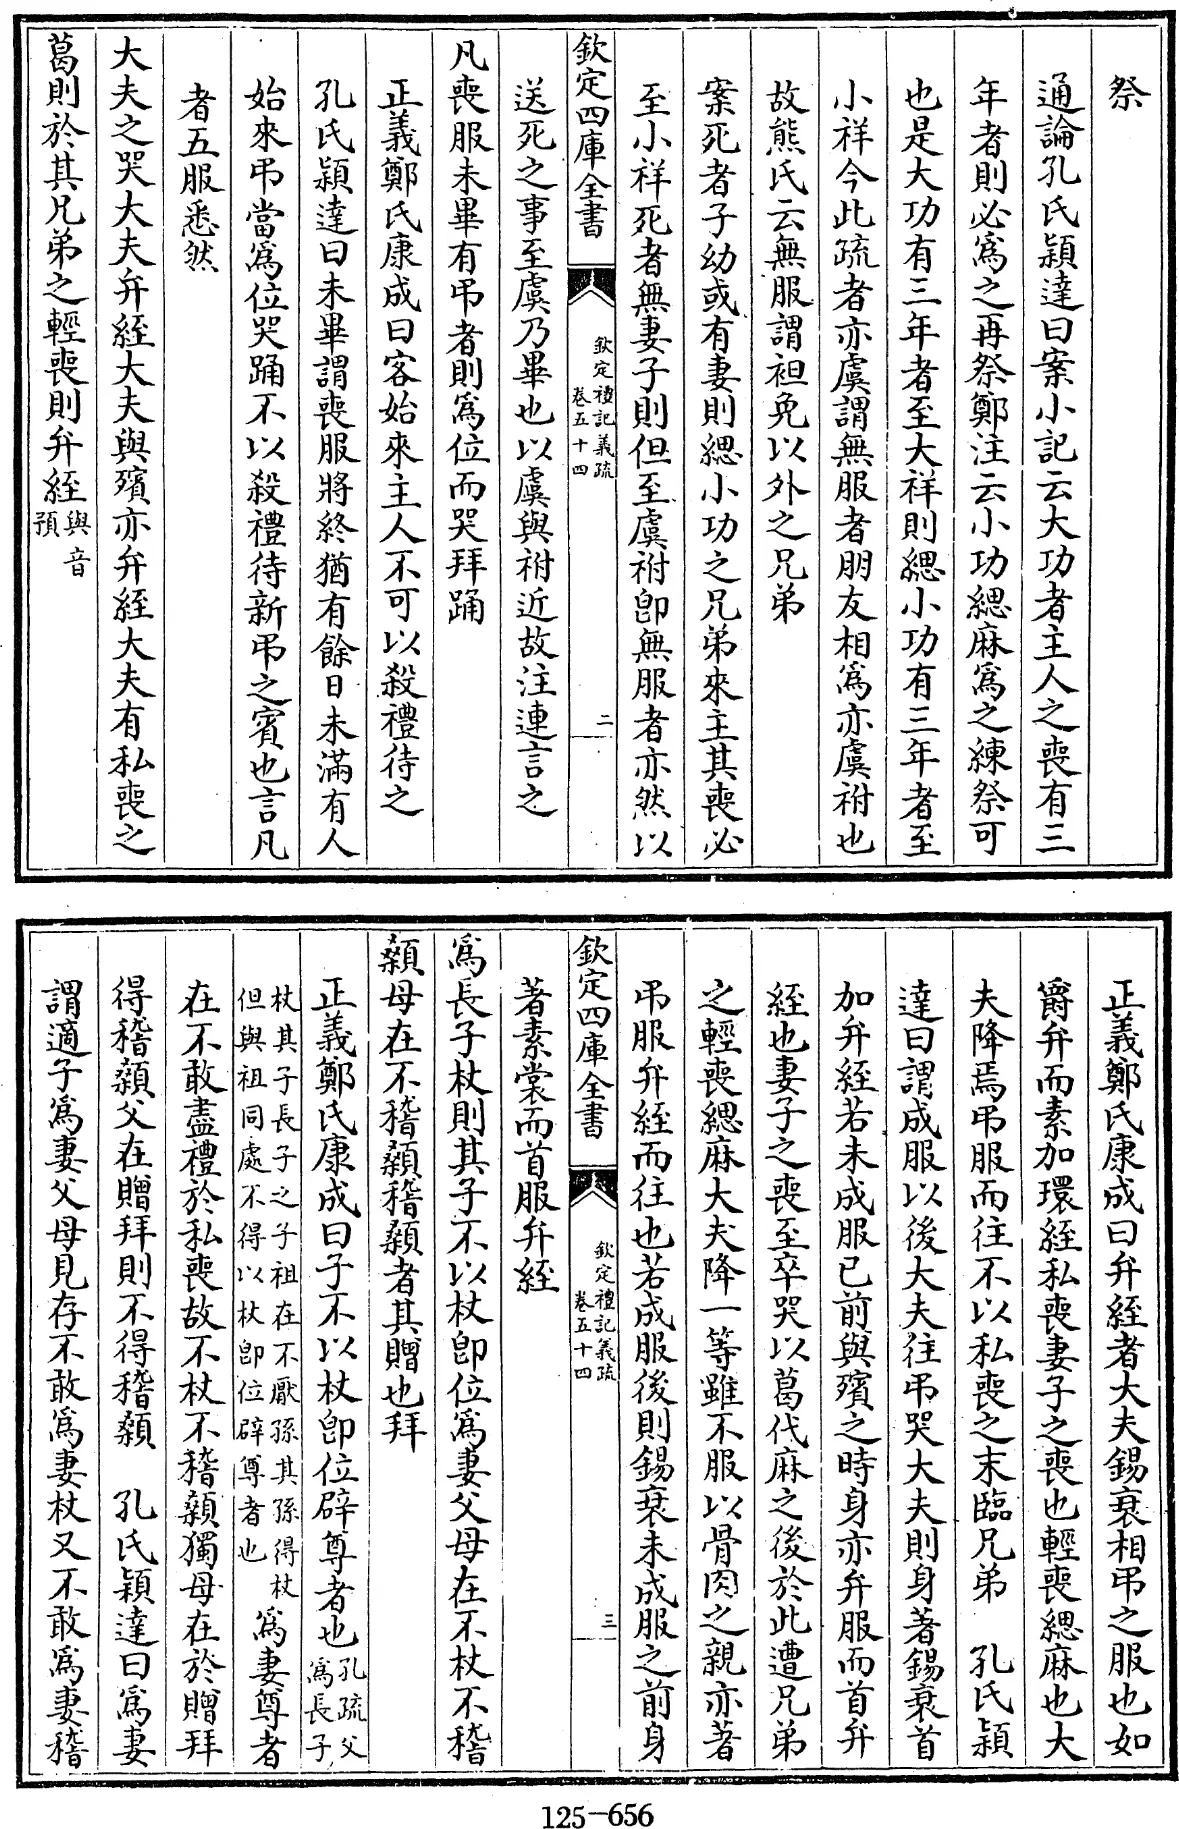 祭
通論孔氏穎達曰案小記云大功者主人之喪有三
年者則必爲之再祭鄭注云小功緦麻爲之練祭可
也是大功有三年者至大祥則緦小功有三年者至
小祥今此疏者亦虞謂無服者朋友相爲亦虞祔也
故熊氏云無服謂袒免以外之兄弟
案死者子幼或有妻則緦小功之兄弟來主其喪必
至小祥死者無妻子則但至虞祔卽無服者亦然以
欽定四庫全書
欽定禮記義疏
卷五十四
二
送死之事至虞乃畢也以虞與祔近故注連言之
凡喪服未畢有弔者則爲位而哭拜踊
正義鄭氏康成曰客始來主人不可以殺禮待之
孔氏穎達曰未畢謂喪服將終猶有餘日未滿有人
始來弔當爲位哭踊不以殺禮待新弔之賓也言凡
者五服悉然
大夫之哭大夫弁絰大夫與殯亦弁絰大夫有私喪之
葛則於其兄弟之輕喪則弁絰與音預
正義鄭氏康成曰弁絰者大夫錫衰相弔之服也如
爵弁而素加環絰私喪妻子之喪也輕喪緦麻也大
夫降焉弔服而往不以私喪之末臨兄弟 孔氏穎
達曰謂成服以後大夫往弔哭大夫則身著錫衰首
加弁絰若未成服已前與殯之時身亦弁服而首弁
絰也妻子之喪至卒哭以葛代麻之後於此遭兄弟
之輕喪緦麻大夫降一等雖不服以骨肉之親亦著
弔服弁絰而往也若成服後則錫衰未成服之前身
欽定四庫全書
欽定禮記義疏
卷五十四
三
著素裳而首服弁絰
爲長子杖則其子不以杖卽位爲妻父母在不杖不稽
顙母在不稽顙稽顙者其贈也拜
正義鄭氏康成曰子不以杖卽位辟尊者也孔疏父爲長子
杖其子長子之子祖在不厭孫其孫得杖但與祖同處不得以杖卽位辟尊者也爲妻尊者
在不敢盡禮於私喪故不杖不稽顙獨母在於贈拜
得稽顙父在贈拜則不得稽顙 孔氏穎達曰爲妻
謂適子爲妻父母見存不敢爲妻杖又不敢爲妻稽
125-656